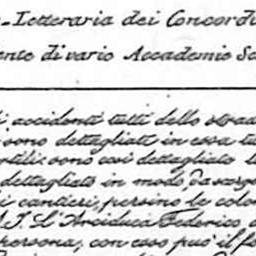 -Letteraria dei Concordi
ente di varie Accademie Sc
i accidenti tutti dello strad
sono dettagliati in essa tu
stili: sono così dettagliato
dettagliato in modo da sorge
i cantieri, persino le colo
A. I. L'Arciduca Federico
persona, con esso può il f